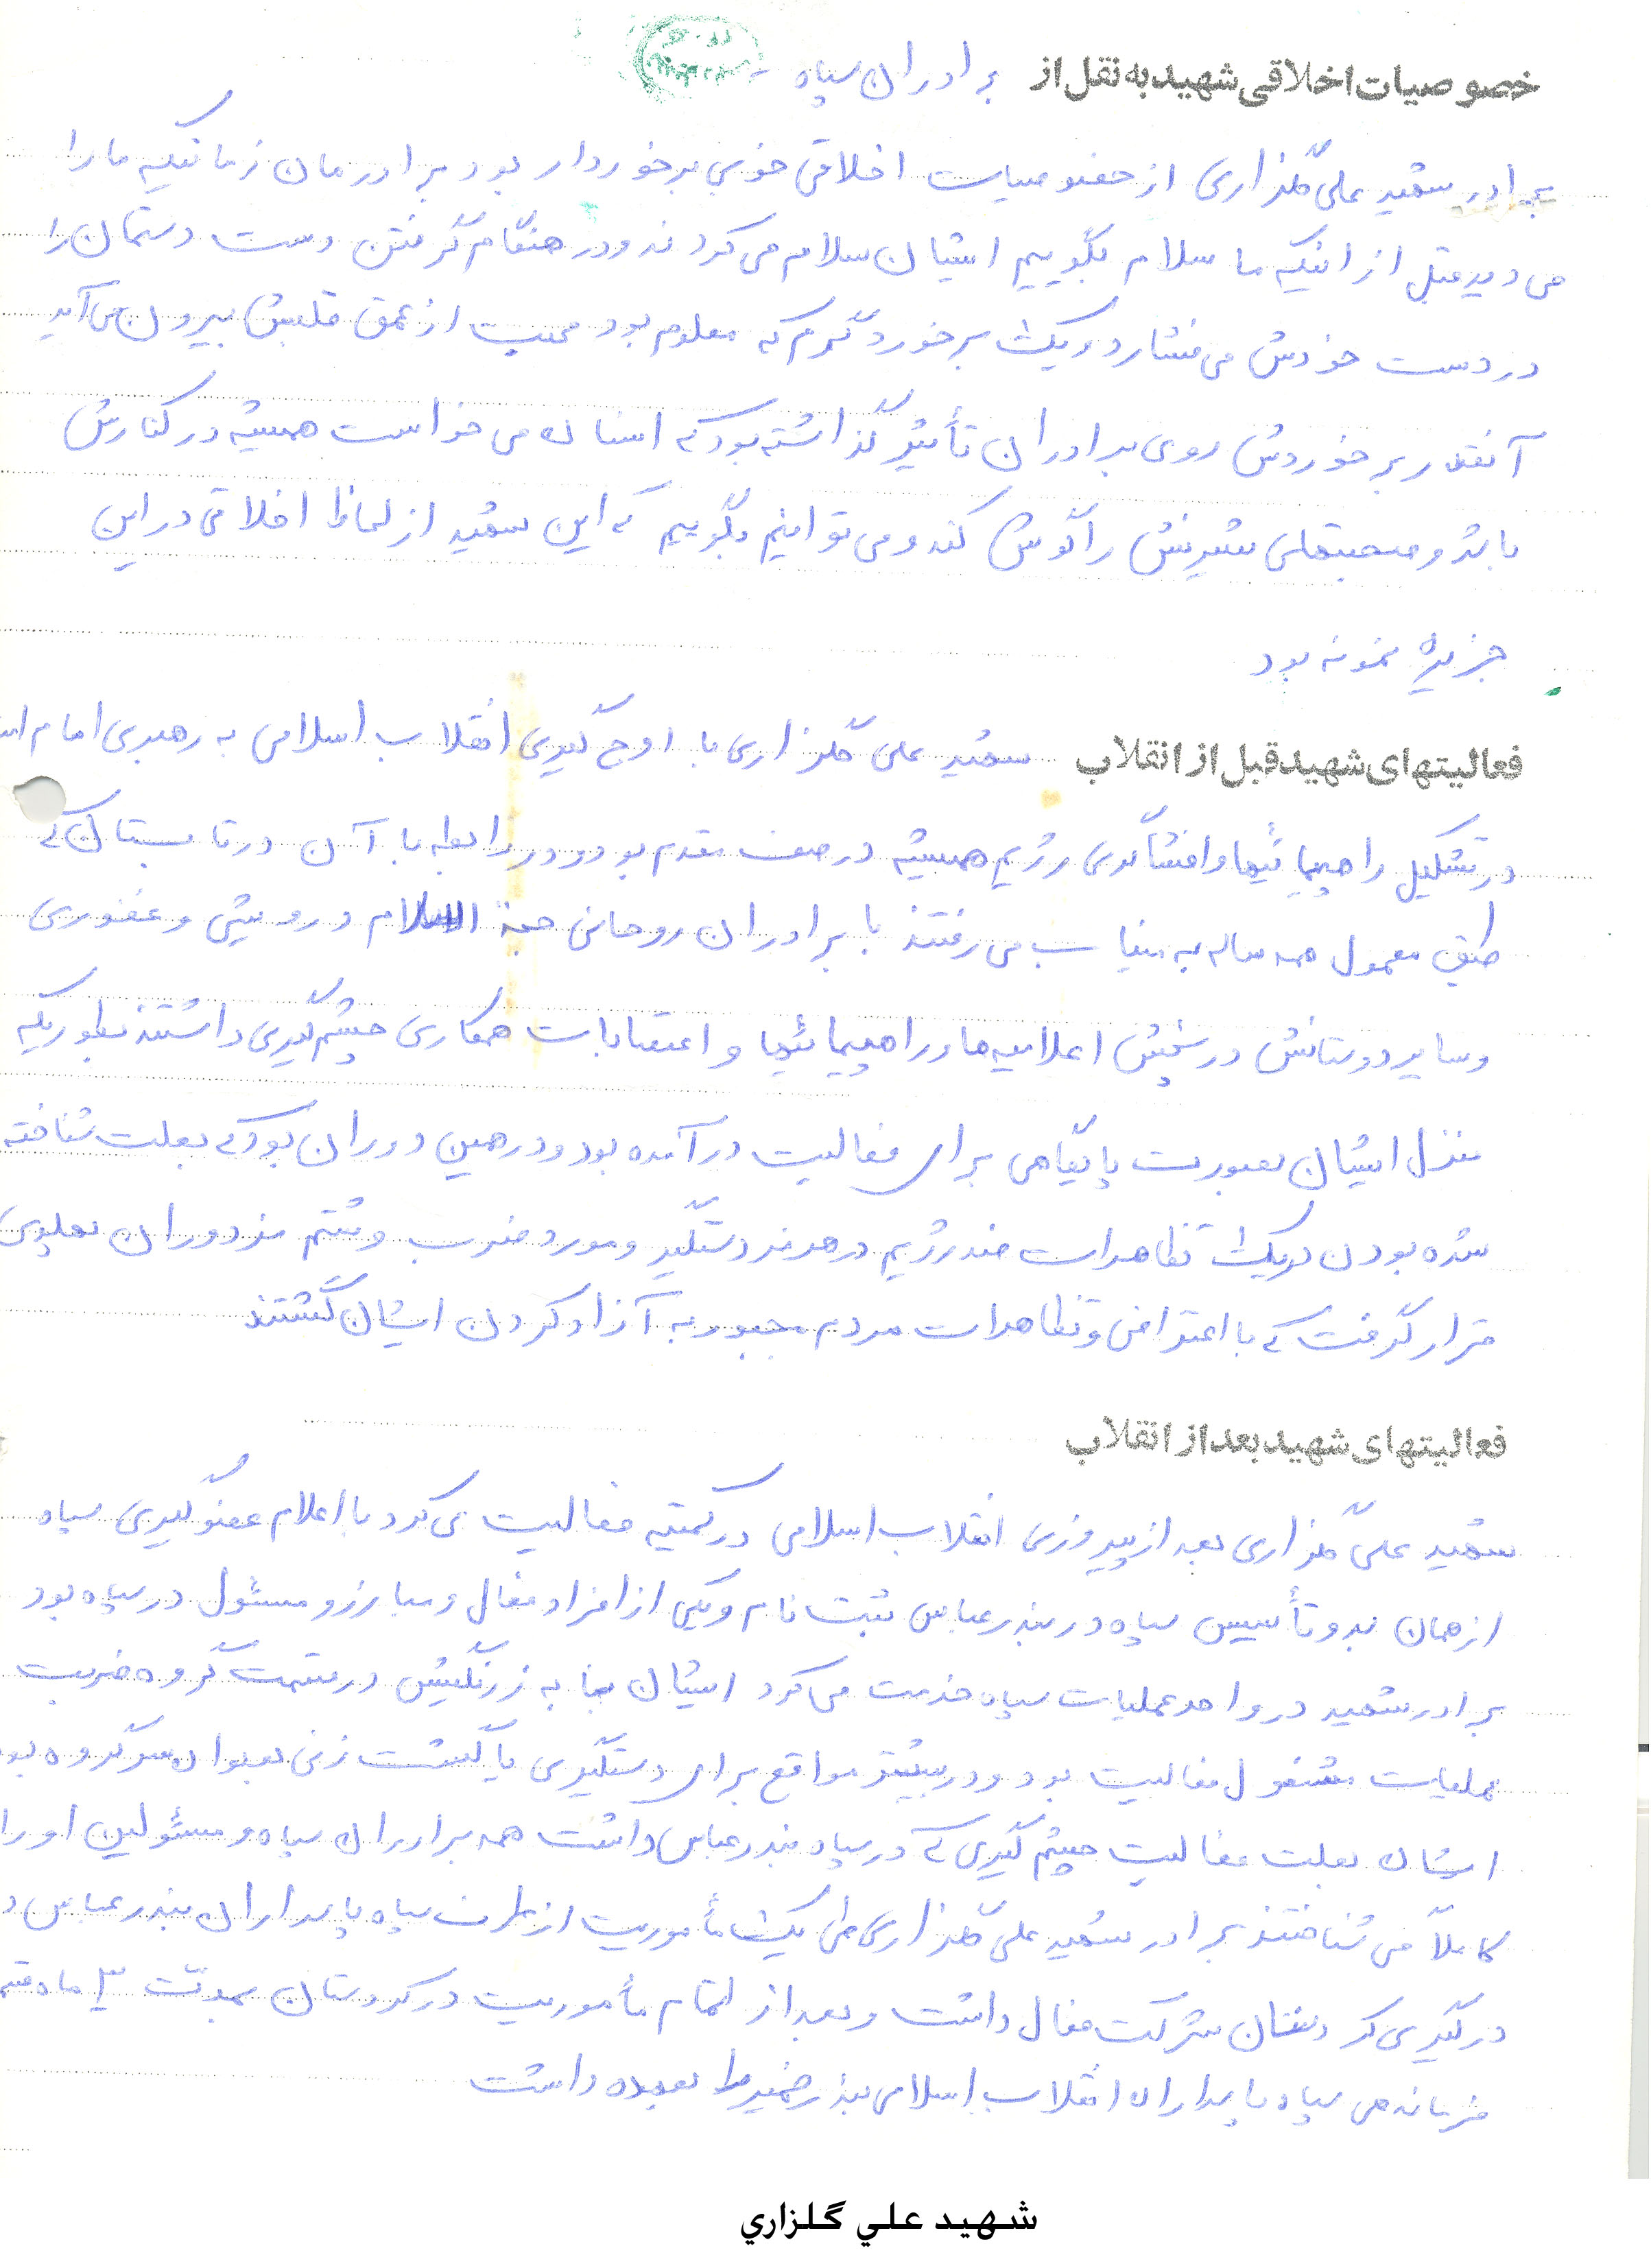 خصوصیات اخلاقی شهید به نقل از برادران سپاه -
برادر شهید علی گلزاری از خصوصیات اخلاقی خوبی برخوردار بود برادرمان زمانیکه ما را
می دید قبل از اینکه ما سلام بگوییم ایشان سلام می کردند و در هنگام گرفتن دست دستمان را
در دست خودش می فشارد و یک برخورد گرم که معلوم بود محبت از عمق قلبش بیرون می آید
آنقدر برخوردش روی برادران تأثیر گذاشته بود که انسان می خواست همیشه در کنارش
باشد و صحبتهای شیرینش را گوش کند و می توانیم بگوییم که این شهید از لحاظ اخلاقی در این
جزیره نمونه بود
فعالیتهای شهید قبل از انقلاب شهید علی گلزاری با اوج گیری انقلاب اسلامی به رهبری امام
در تشکیل راهپیمائیها و افشاگری رژیم همیشه در صف مقدم بود و در رابطه با آن در تابستان که
طبق معمول همه ساله به میناب می رفتند با برادران روحانی حجة السلام درویشی و غفوری
و سایر دوستانش در پخش اعلامیه ها و راهپیمائیها و اعتصابات همکاری چشم گیری داشتند بطوریکه
منزل ایشان بصورت پایگاهی برای فعالیت درآمده بود و در همین دوران بود که بعلت شناخته
شده بودن در یک تظاهرات ضد رژیم در هرمز دستگیر و مورد ضرب و شتم مزدوران پهلوی
قرار گرفت که با اعتراض و تظاهرات مردم مجبور به آزاد کردن ایشان گشتند
فعالیتهای شهید بعد از انقلاب
شهید علی گلزاری بعد از پیروزی انقلاب اسلامی در کمیته فعالیت می کرد با اعلام عضوگیری سپاه
از همان بدو تأسیس سپاه در بندرعباس ثبت نام و یکی از افراد فعال و مبارز و مسئول در سپاه بود
برادر شهید در واحد عملیات سپاه خدمت می کرد ایشان بنا به زرنگیش در قسمت گروه ضربت
عملیات مشغول فعالیت بود و در بیشتر مواقع برای دستگیری یا گشت زنی بعنوان سرگروه بود
ایشان بعلت فعالیت چشم گیری که در سپاه بندرعباس داشت همه برادران سپاه و مسئولین او را
کاملاً می شناختند برادر شهید علی گلزاری طی یک مأموریت از طرف سپاه پاسداران بندرعباس در
درگیری کردستان شرکت فعال داشت و بعد از اتمام مأموریت در کردستان بمدت ۳ ماه
فرماندهی سپاه پاسداران انقلاب اسلامی بندر خمیر را بعهده داشت
شهيد علي گلزاري